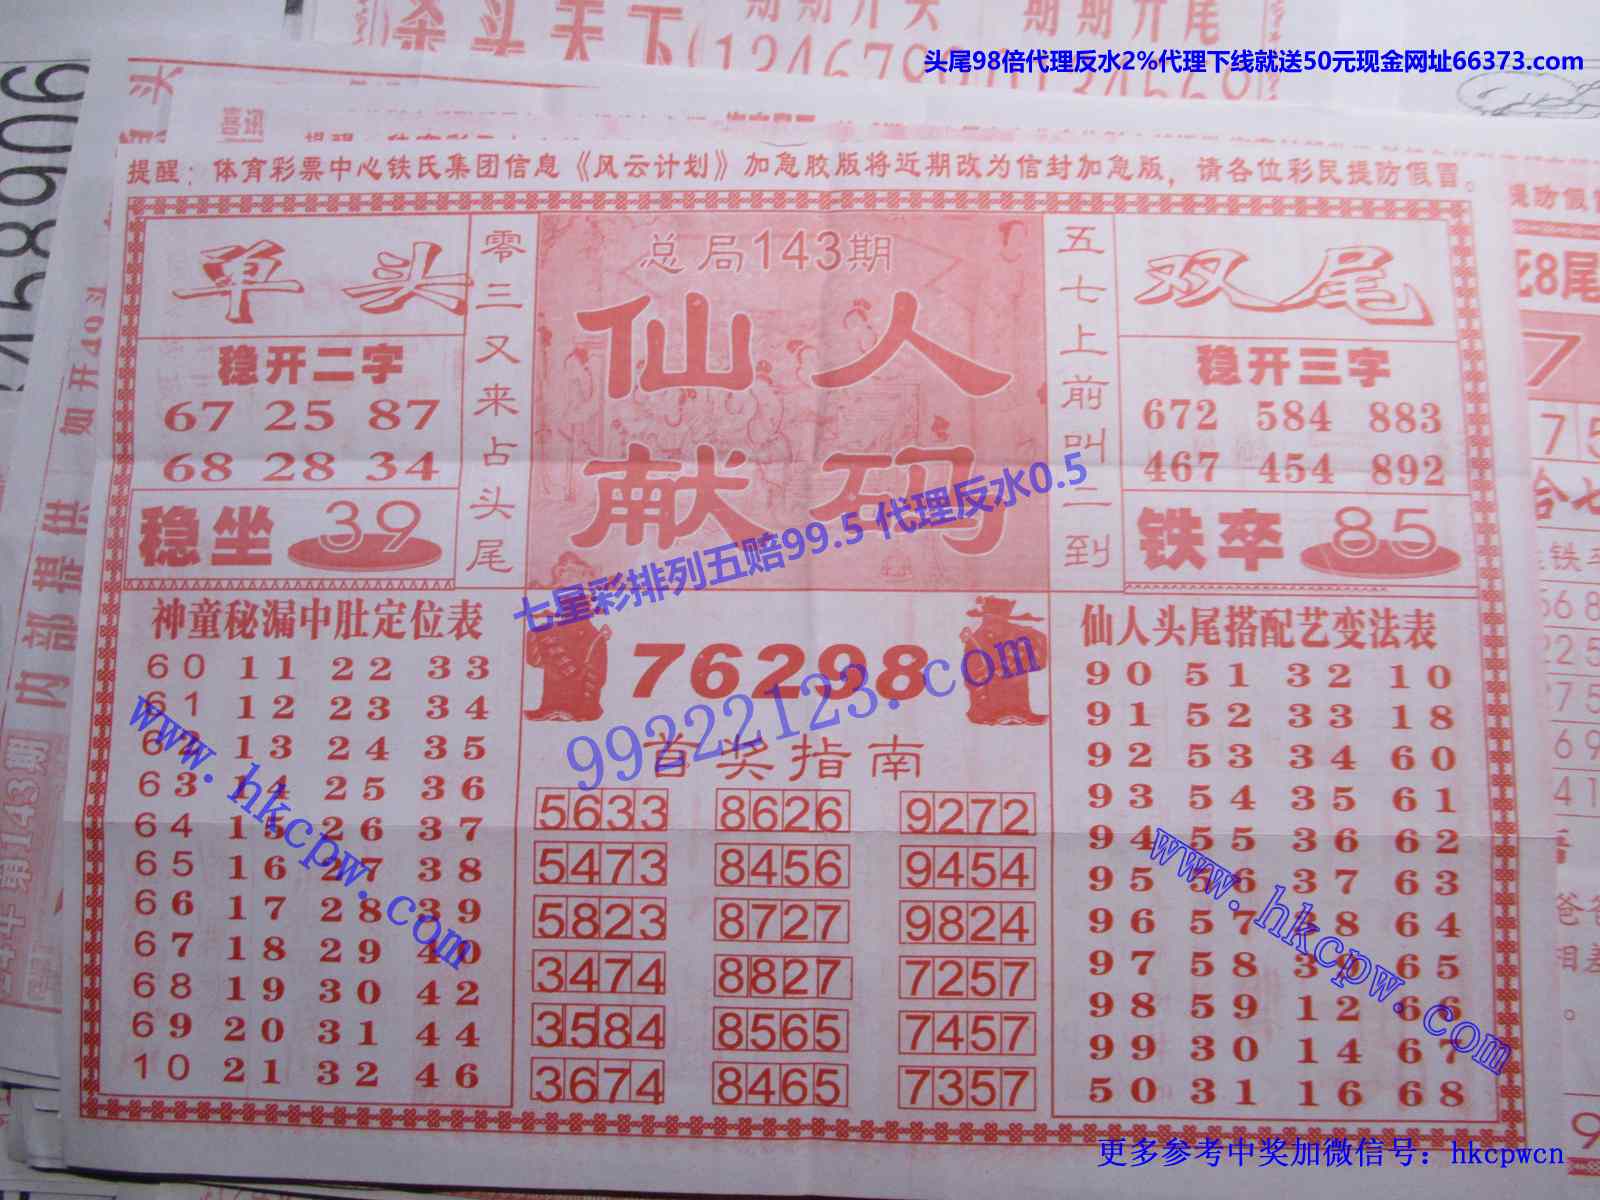 期期开头 期期开尾
杀头天下
头尾98倍代理反水2%代理下线就送50元现金网址66373.com
喜讯
458906
提醒：体育彩票中心铁氏集团信息《风云计划》加急胶版将近期改为信封加急版，请各位彩民提防假冒。
提防假冒
单头
零三又来占头尾
总局143期
仙人
献码
五七上前叫二到
双尾
稳开二字
67 25 87
68 28 34
稳坐 39
稳开三字
672 584 883
467 454 892
铁卒 85
七星彩排列五赔99.5 代理反水0.5
99222123.com
神童秘漏中肚定位表
60 11 22 33
61 12 23 34
62 13 24 35
63 14 25 36
64 15 26 37
65 16 27 38
66 17 28 39
67 18 29 40
68 19 30 42
69 20 31 44
10 21 32 46
www.hkcpw.com
76298
首奖指南
5633 8626 9272
5473 8456 9454
5823 8727 9824
3474 8827 7257
3584 8565 7457
3674 8465 7357
仙人头尾搭配艺变法表
90 51 32 10
91 52 33 18
92 53 34 60
93 54 35 61
94 55 36 62
95 56 37 63
96 57 38 64
97 58 39 65
98 59 12 66
99 30 14 67
50 31 16 68
www.hkcpw.com
内部提供
如开40头
第143期
8尾
更多参考中奖加微信号：hkcpwcn